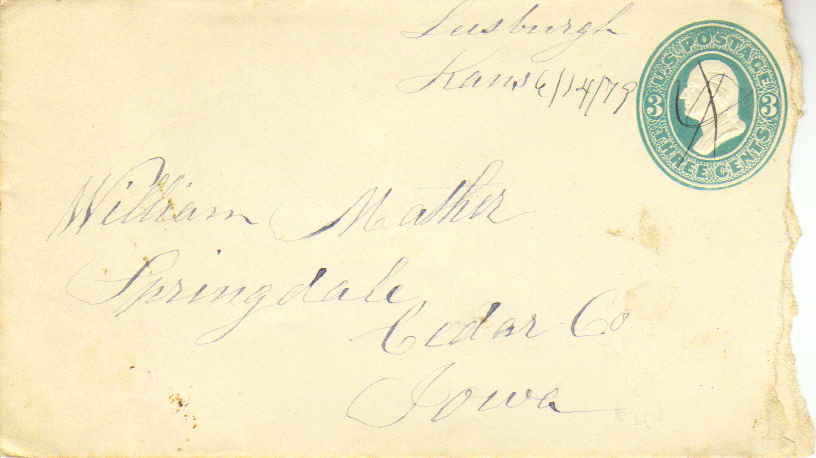 Lusburgh
Kans 6/14/79
U.S. POSTAGE
3 3
THREE CENTS
William Mather
Springdale
Cedar Co
Iowa